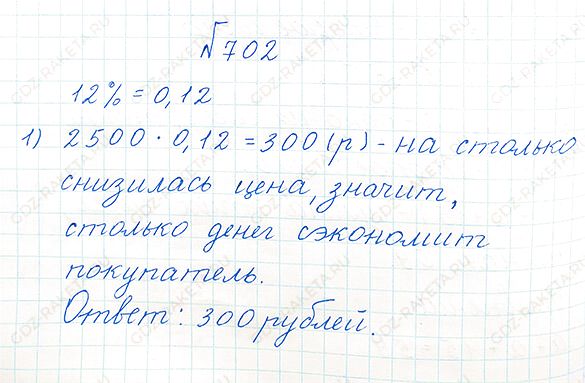 №702
12% = 0,12
1) 2500 · 0,12 = 300 (р) - на столько
снизилась цена, значит,
столько денег сэкономит
покупатель.
Ответ: 300 рублей.